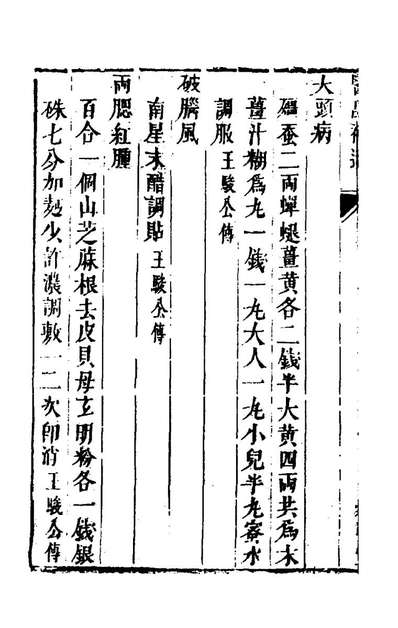 大頭病
殭蚕二両蟬蛻薑黄各二錢半大黄四両共爲末
薑汁糊爲丸一錢一丸大人一丸小兒半丸蜜水
調服王駿公傳
破腦風
南星末醋調貼王駿公傳
両腮紅腫
百合一個山芝蔴根去皮貝母玄明粉各一錢銀
硃七分加麺少許濃調敷一二次即消王駿公傳